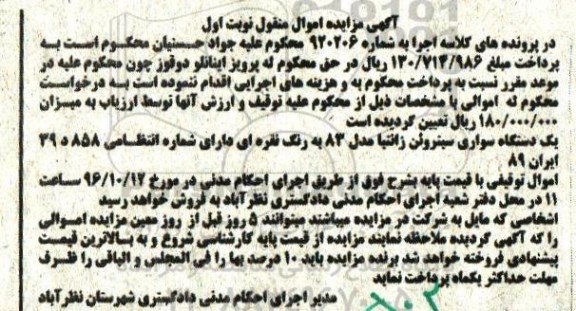 آگهی مزایده اموال منقول نوبت اول
در پرونده های کلاسه اجرا به شماره ۹۲۰۲۰۶ محکوم علیه جواد حسنیان محکوم است به
پرداخت مبلغ ۱۳۰/۷۱۴/۹۸۶ ریال در حق محکوم له پرویز اینانلو دوقوز چون محکوم علیه در
موعد مقرر نسبت به پرداخت محکوم به و هزینه های اجرایی اقدام ننموده است به درخواست
محکوم له اموالی با مشخصات ذیل از محکوم علیه توقیف و ارزش آنها توسط ارزیاب به میزان
۱۸۰/۰۰۰/۰۰۰ ریال تعیین گردیده است
یک دستگاه سواری سیتروئن زانتیا مدل ۸۳ به رنگ نقره ای دارای شماره انتظامی ۸۵۸ د ۳۹
ایران ۸۹
اموال توقیفی با قیمت پایه بشرح فوق از طریق اجرای احکام مدنی در مورخ ۹۶/۱۰/۱۲ ساعت
۱۱ در محل دفتر شعبه اجرای احکام مدنی دادگستری نظرآباد به فروش خواهد رسید
اشخاصی که مایل به شرکت در مزایده میباشند میتوانند ۵ روز قبل از روز معین مزایده اموالی
را که آگهی گردیده ملاحظه نمایند مزایده از قیمت پایه کارشناسی شروع و به بالاترین قیمت
پیشنهادی فروخته خواهد شد برنده مزایده باید ۱۰ درصد بها را فی المجلس و الباقی را ظرف
مهلت حداکثر یکماه پرداخت نماید
مدیر اجرای احکام مدنی دادگستری شهرستان نظرآباد